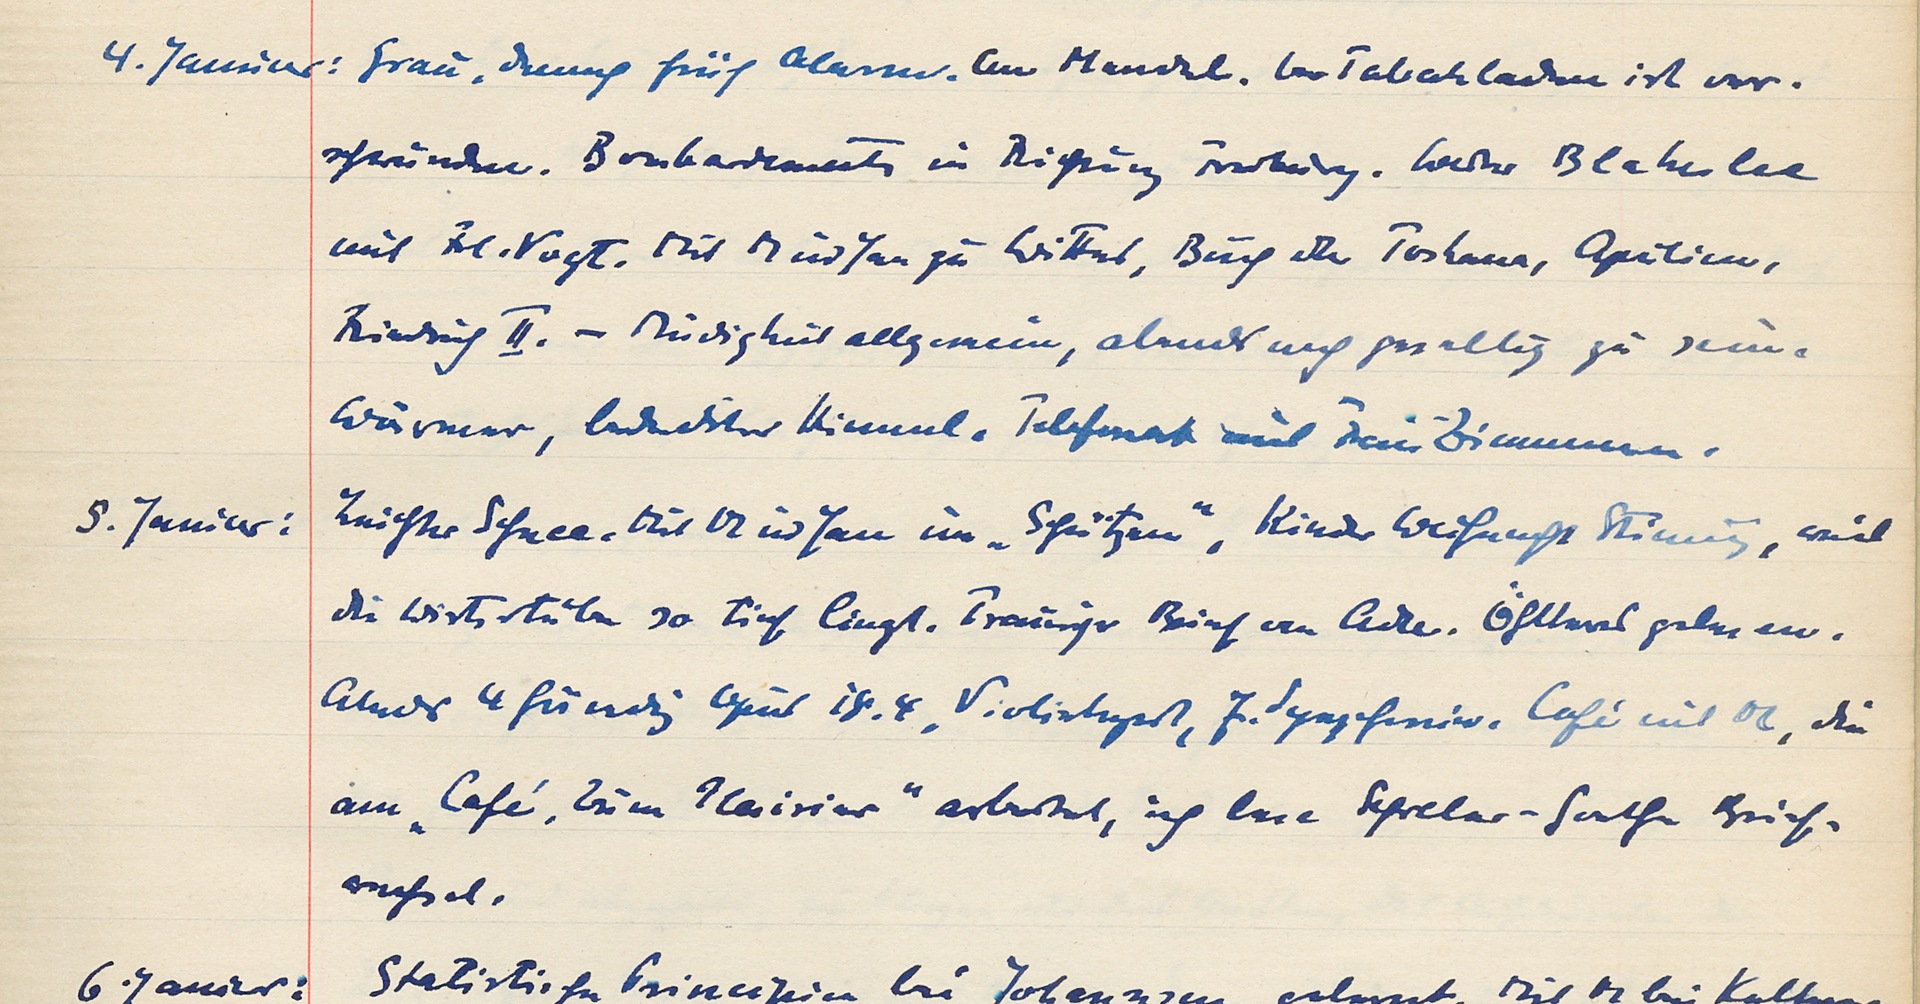 4. Januar: Grau, dunstig früh Alarm. Am Mundel. Der Tabakladen ist ver-
schwunden. Bombardements in Richtung Freiburg. Keine Blakelee
mit Frl. Vogt. Mit M und Jan zu Wittel, Buch über Toskana, Apulien,
Friedrich II. – Müdigkeit allgemein, abends noch gesellig zu sein.
Wärmer, bedeckter Himmel. Telefonat mit Frau Zimmermann.
5. Januar: Leichter Schnee. Mit M und Jan im „Schützen“, Kinder Weihnacht Stimmung, weil
die Wirtsstube so tief liegt. Trauriger Brief von Ada. Öfters gelesen.
Abends 4 händig Opus 18.4, Violinkonzert, 7. Symphonie. Café mit M, die
am „Café, Zum Plaisir“ arbeitet, ich lese Schiller-Goethe Brief-
wechsel.
6. Januar: Statistische Prinzipien bei Johannsen gelernt. Mit M bei